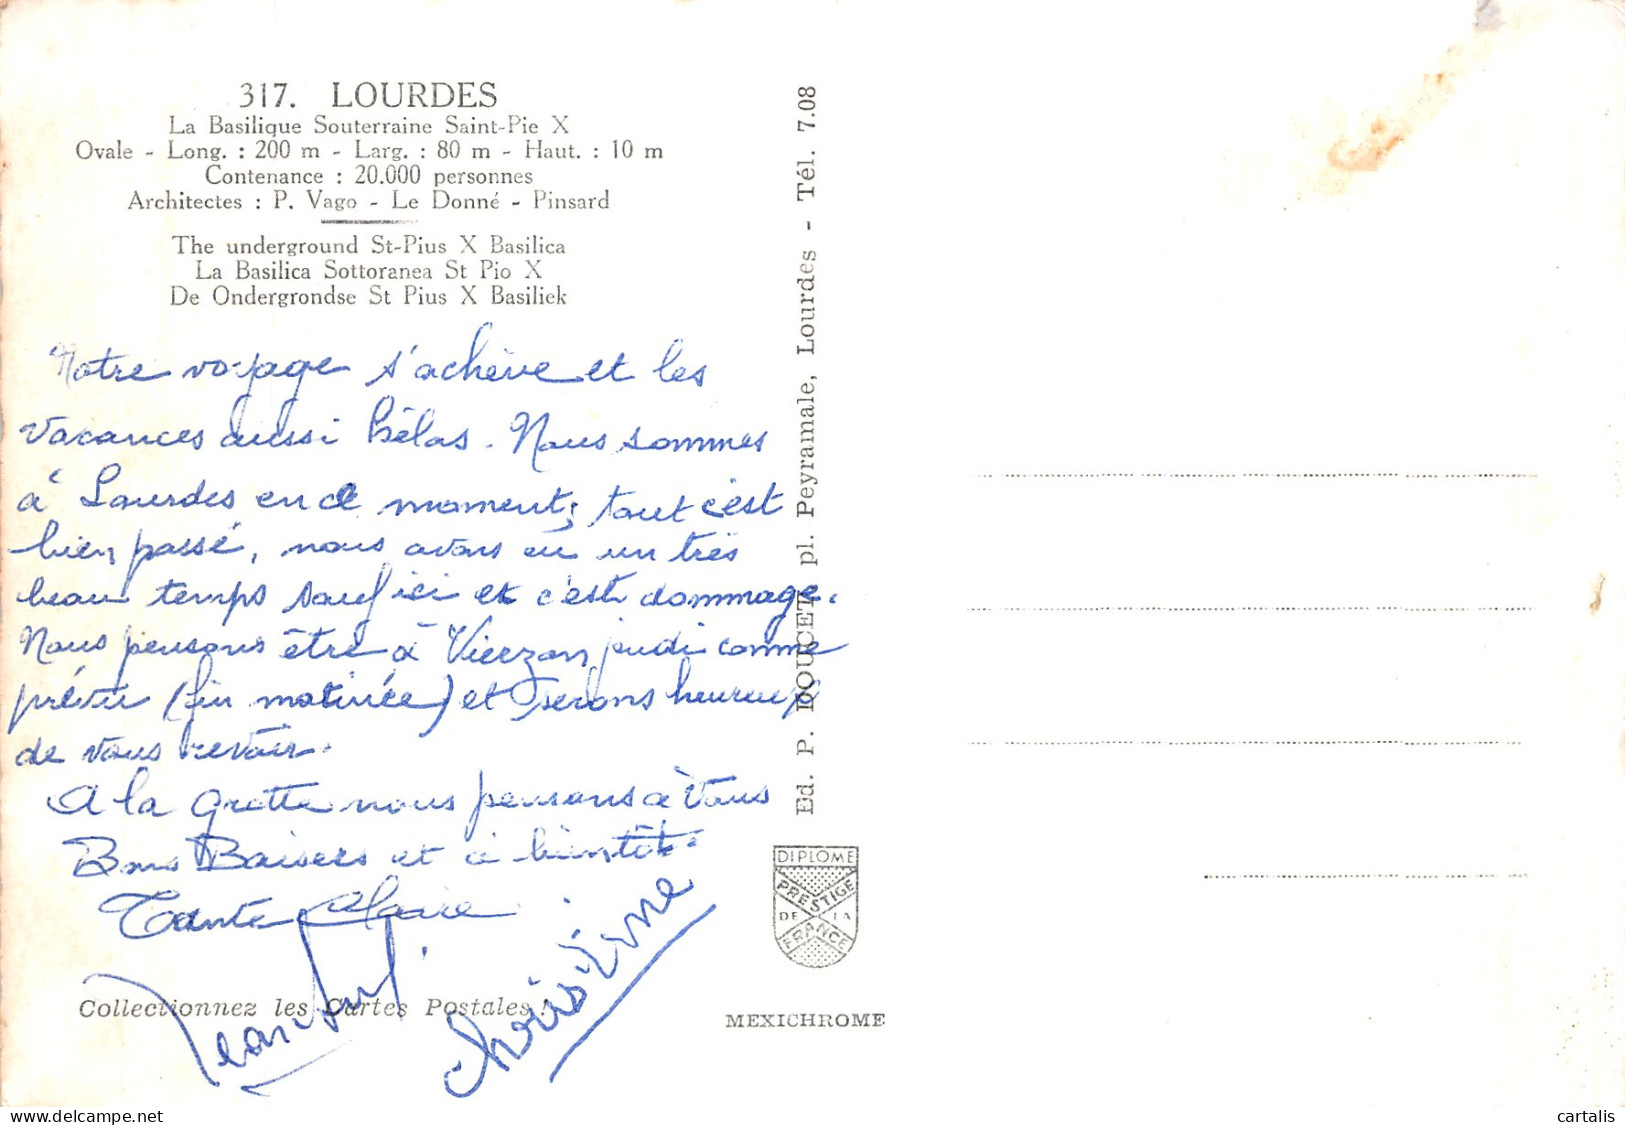 317. LOURDES
La Basilique Souterraine Saint-Pie X
Ovale - Long. : 200 m - Larg. : 80 m - Haut. : 10 m
Contenance : 20.000 personnes
Architectes : P. Vago - Le Donné - Pinsard
The underground St-Pius X Basilica
La Basilica Sottoranea St Pio X
De Ondergrondse St Pius X Basiliek
Notre voyage s'achève et les
vacances aussi hélas. Nous sommes
à Lourdes en ce moment, tout c'est
bien passé, nous avons eu un très
beau temps sauf ici et c'est dommage.
Nous pensons être à Vierzon jeudi comme
prévu (fin matinée) et serons heureux
de vous revoir.
A la grotte nous pensons à vous
Bons Baisers et à bientôt.
Tante Claire
Jean Paul
Christine
Collectionnez les Cartes Postales !
Ed. P. DOUCET pl. Peyramale, Lourdes - Tél. 7.08
DIPLOME
PRESTIGE
DE LA
FRANCE
MEXICHROME
delcampe.net
cartalis